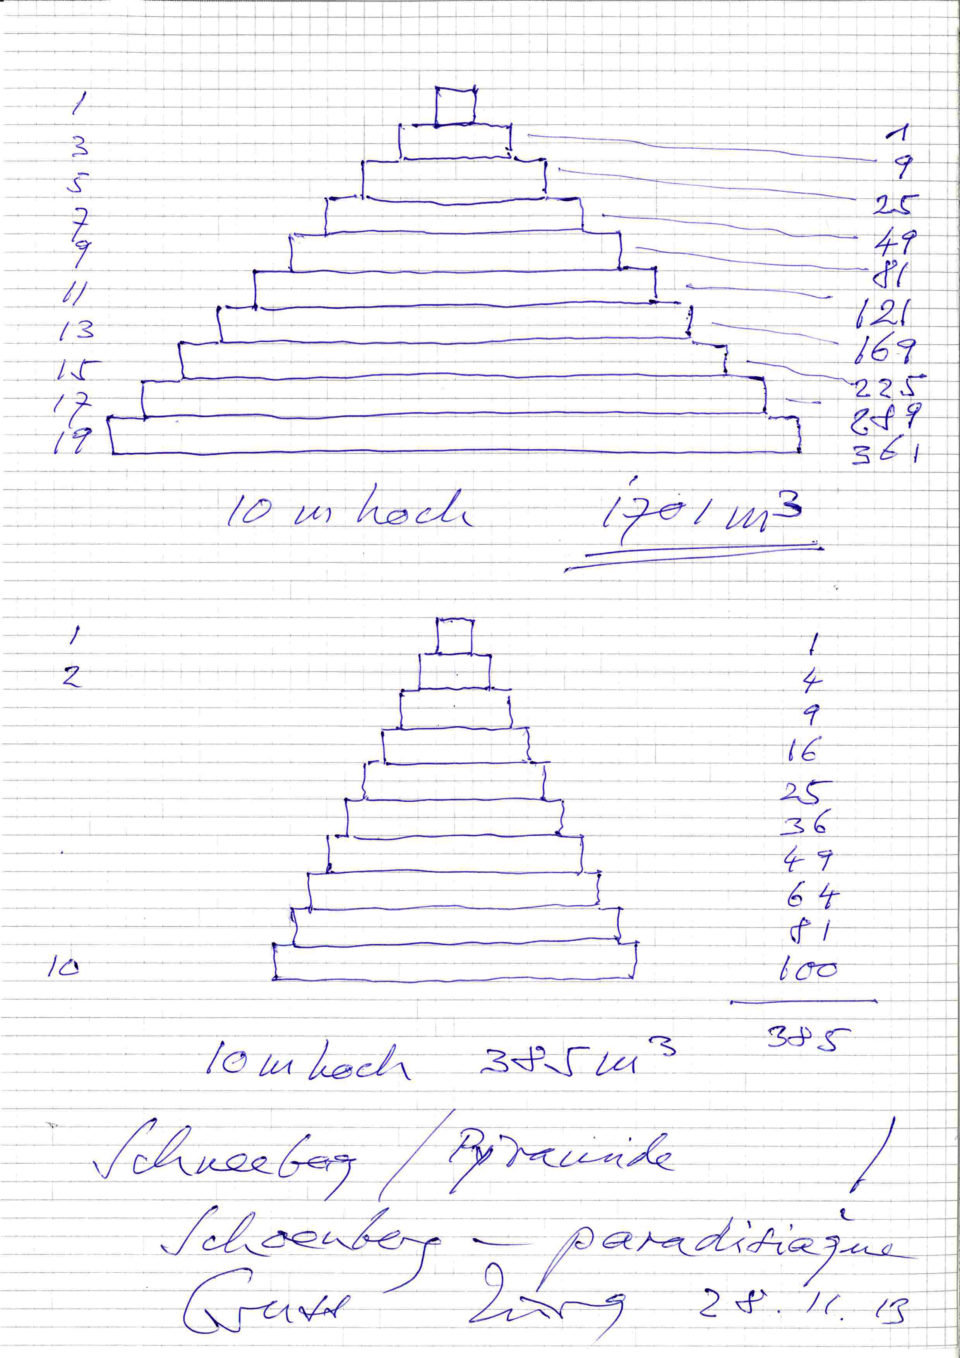 1 1
3 9
5 25
7 49
9 81
11 121
13 169
15 225
17 289
19 361
10 m hoch 1701 m³
1 1
2 4
9
16
25
36
49
64
81
10 100
385
10 m hoch 385 m³
Schneeberg / Pyramide /
Schoenberg – paradisiaque
Gruss Jürg 28.11.13